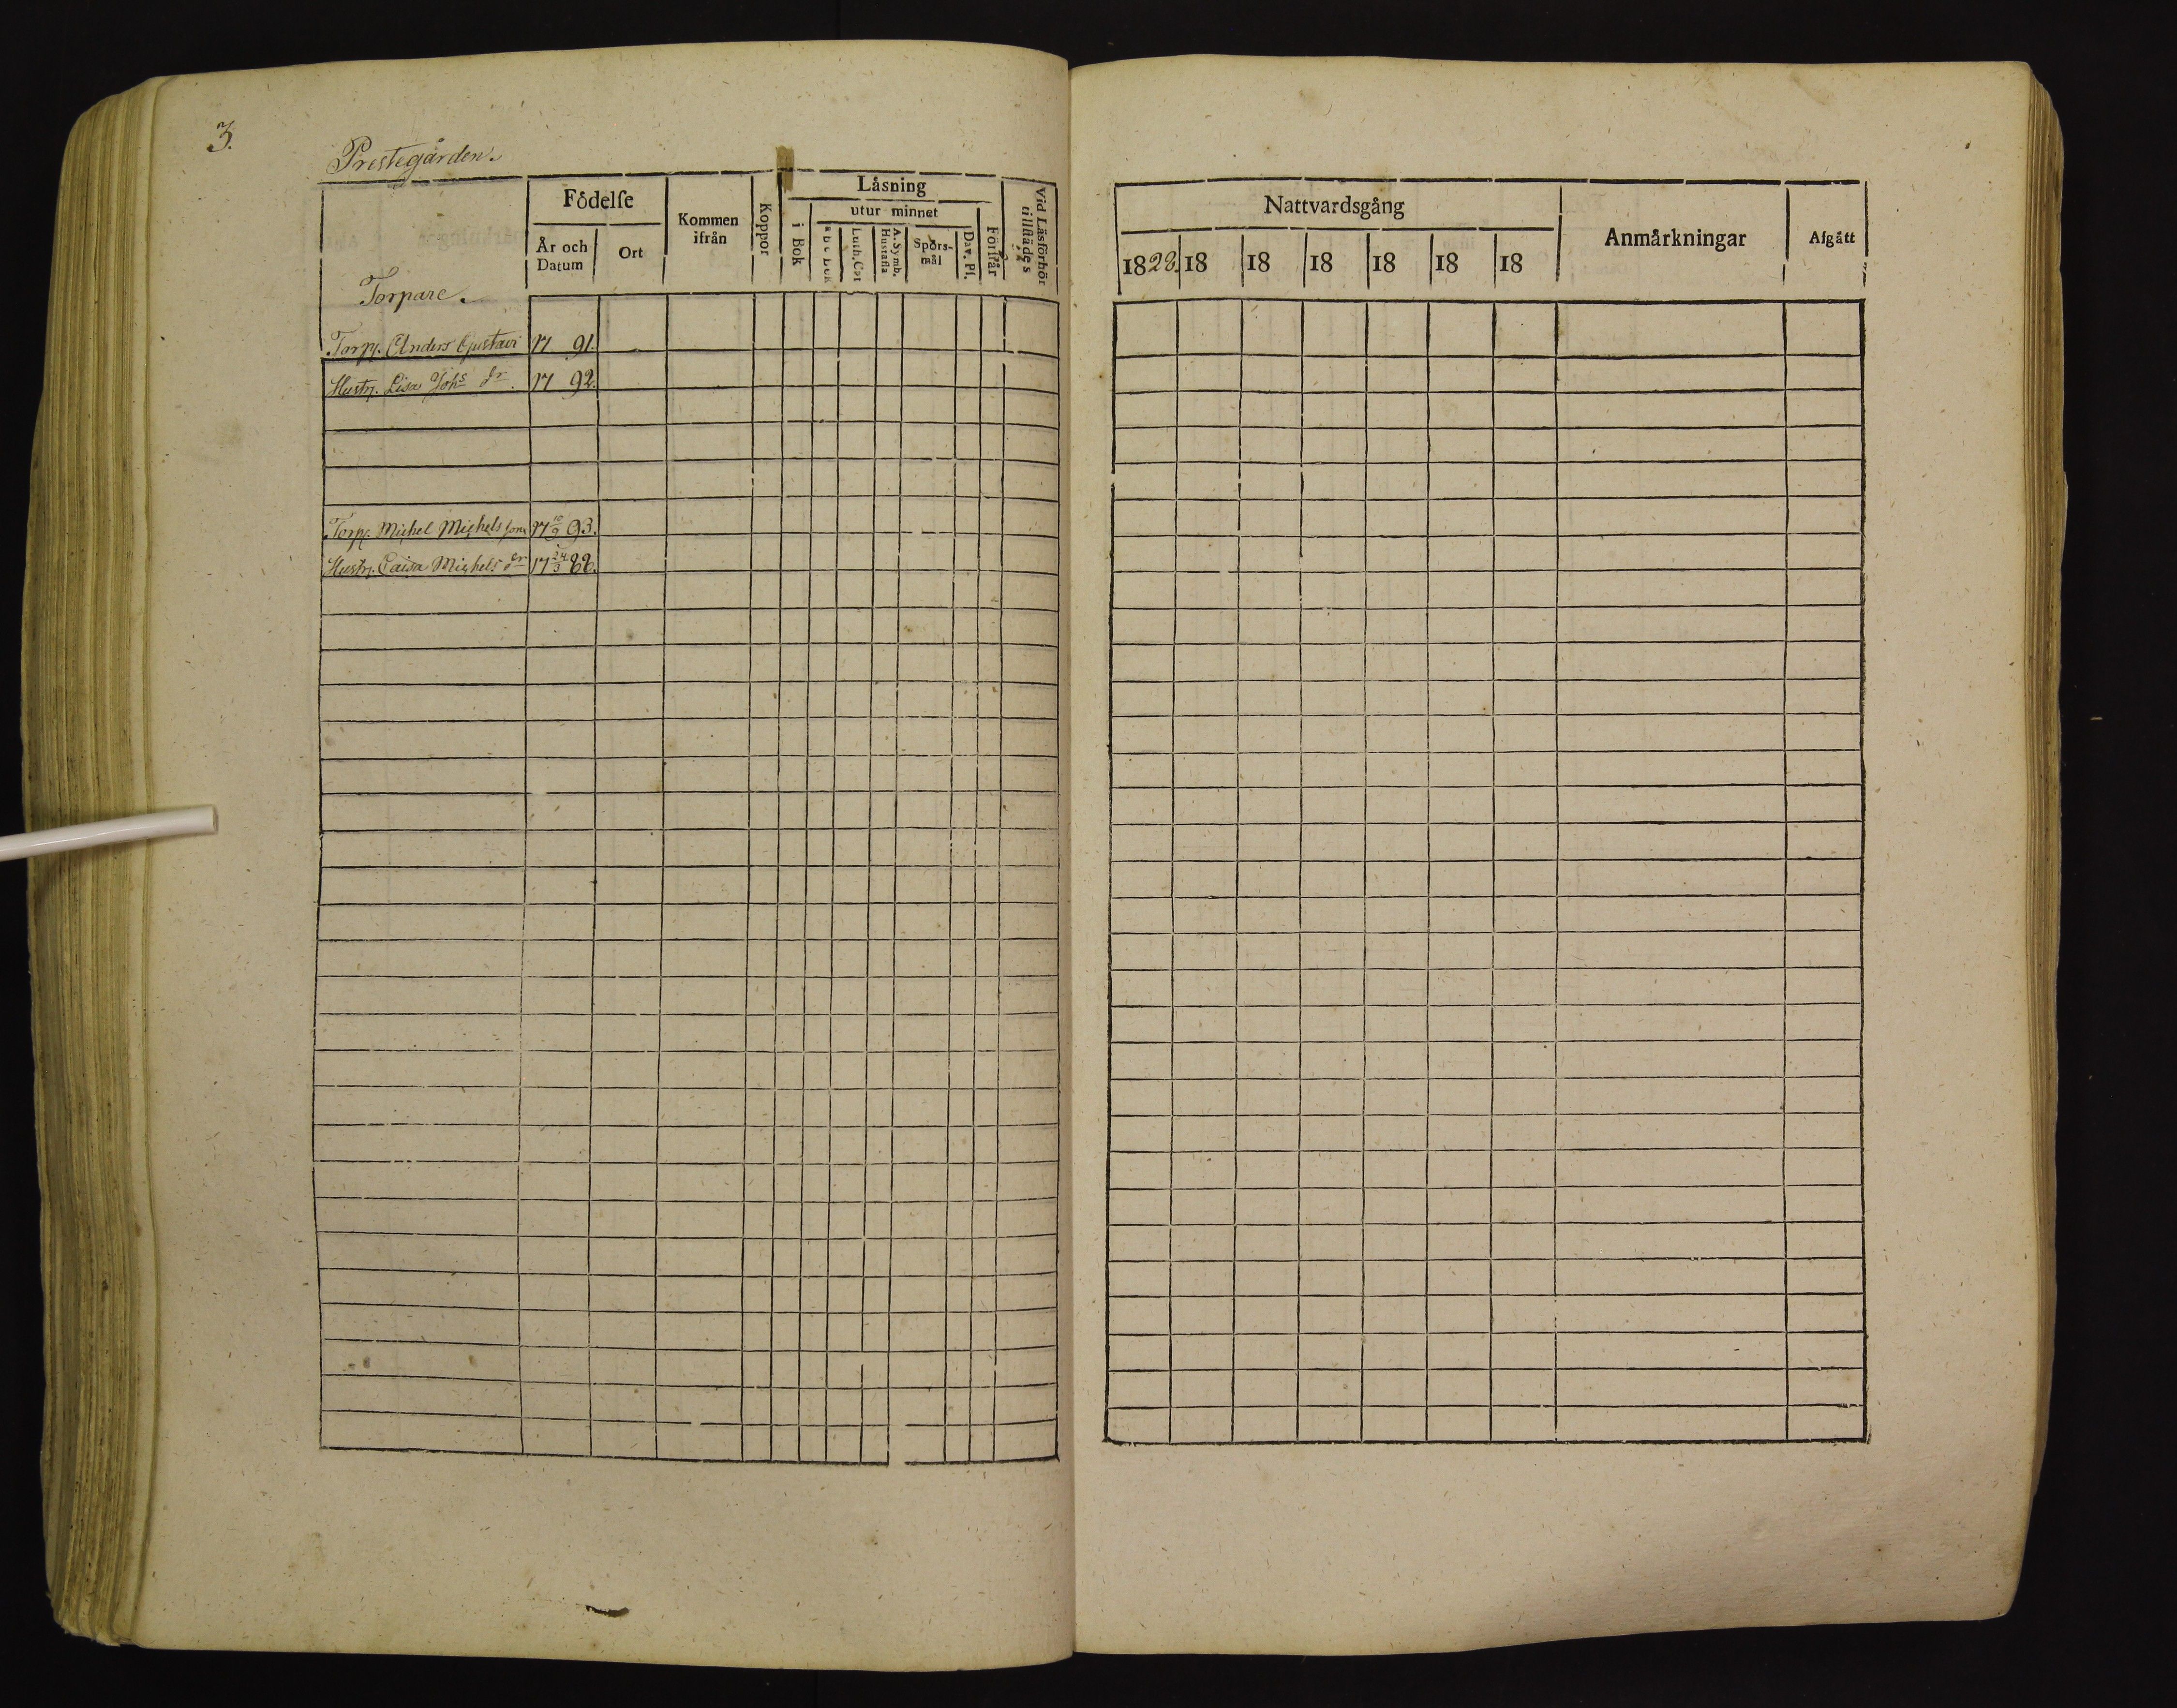 3.
Prestegården.
Födelse
Kommen ifrån
Koppor
Låsning
utur minnet
Vid Läsförhör tillstädes
År och Datum
Ort
i Bok
Luth. Cat
A. Symb. Hustafla
Spörsmål
Dav. Ps.
Förstår
Torpare.
Torp. Anders Gustavi 17 91.
Hustr. Lisa Johs dr. 17 92.
Torp. Michel Michels son 17 10/9 93.
Hustr. Caisa Michels dr 17 24/3 88.
Nattvardsgång
Anmärkningar
Afgått
1828. 18 18 18 18 18 18